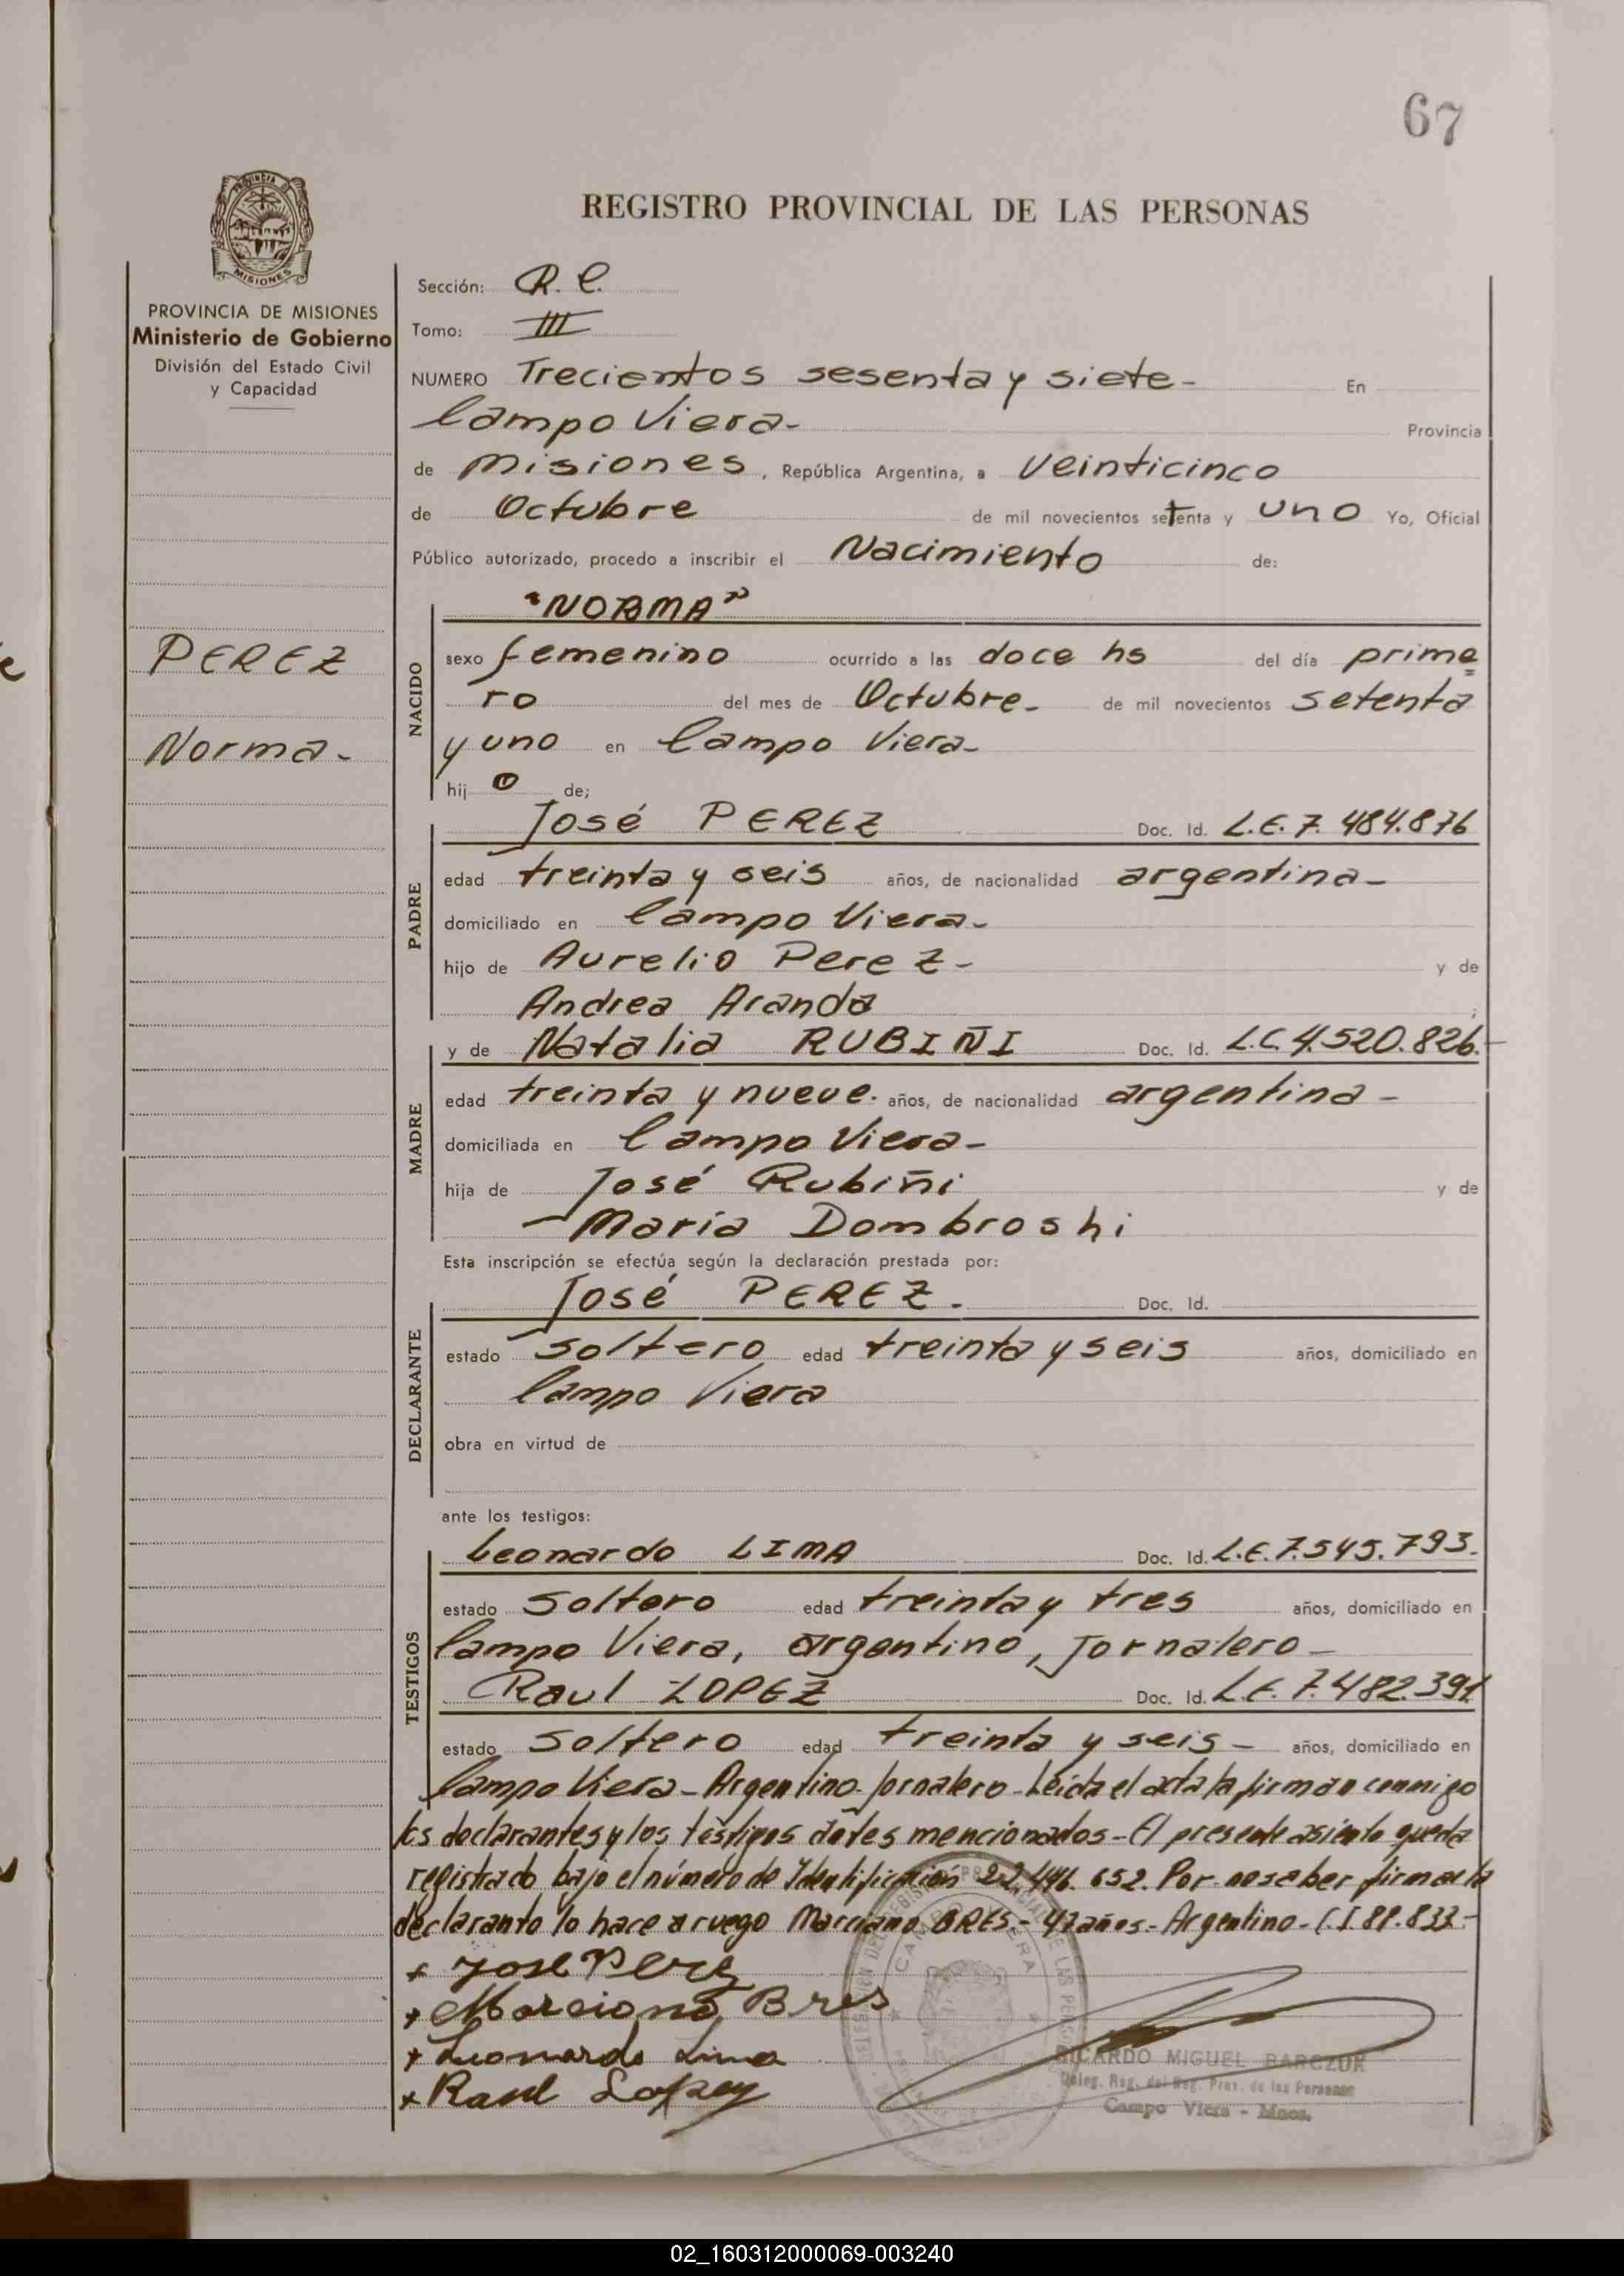 67
REGISTRO PROVINCIAL DE LAS PERSONAS
PROVINCIA DE MISIONES
Ministerio de Gobierno
División del Estado Civil
y Capacidad
PEREZ
Norma-
Sección: R. C.
Tomo: III
NUMERO Trecientos sesenta y siete- En
Campo Viera- Provincia
de Misiones, República Argentina, a Veinticinco
de Octubre de mil novecientos setenta y uno Yo, Oficial
Público autorizado, procedo a inscribir el Nacimiento de:
NACIDO
"NORMA"
sexo femenino ocurrido a las doce hs del día prime
ro del mes de Octubre- de mil novecientos setenta
y uno en Campo Viera-
hij o de;
PADRE
José PEREZ Doc. Id. L.E. 7. 484.876
edad treinta y seis años, de nacionalidad argentina-
domiciliado en Campo Viera-
hijo de Aurelio Perez- y de
Andrea Aranda ;
MADRE
y de Natalia RUBIÑI Doc. Id. L.C. 4.520.826.-
edad treinta y nueve. años, de nacionalidad argentina-
domiciliada en Campo Viera-
hija de José Rubiñi y de
- María Dombroshi
Esta inscripción se efectúa según la declaración prestada por:
DECLARANTE
José PEREZ. Doc. Id.
estado soltero edad treinta y seis años, domiciliado en
Campo Viera
obra en virtud de
ante los testigos:
TESTIGOS
Leonardo LIMA Doc. Id. L.E. 7.545.793.
estado Soltero edad treinta y tres años, domiciliado en
Campo Viera, argentino, Jornalero-
Raul LOPEZ Doc. Id. L.E. 7.482.391
estado Soltero edad treinta y seis- años, domiciliado en
Campo Viera- Argentino. Jornalero- Leída el acta la firman conmigo
los declarantes y los testigos antes mencionados- El presente asiento queda
registrado bajo el número de Identificación 22.446.652. Por no saber firmar la
declarante lo hace a ruego Marciano BRES.- 47 años.- Argentino- C.I 81.833.-
+ Jose Perez
+ Marciano Bres
+ Leonardo Lima
+ Raul Lopez
CAMPO VIERA
RICARDO MIGUEL BARCZUK
Deleg. Reg. del Reg. Prov. de las Personas
Campo Viera - Mnes.
02_160312000069-003240